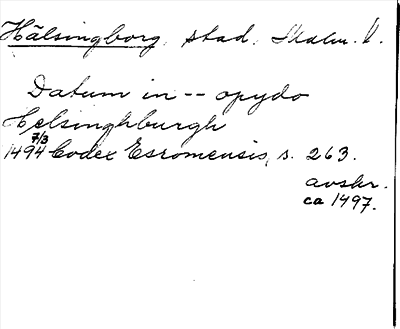 Hälsingborg, stad, Malm. l.
Datum in -- opydo
Helsinghburgh
7/3
1494 Codex Esromensis, s. 263.
avskr.
ca 1497.